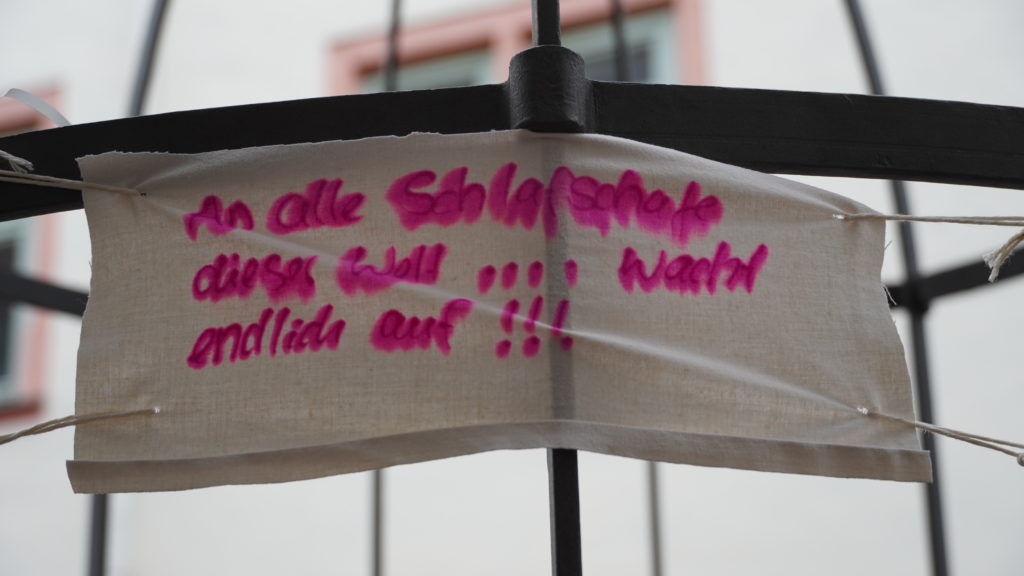 An alle Schlafschafe
dieser Welt !!!! Wacht
endlich auf !!!